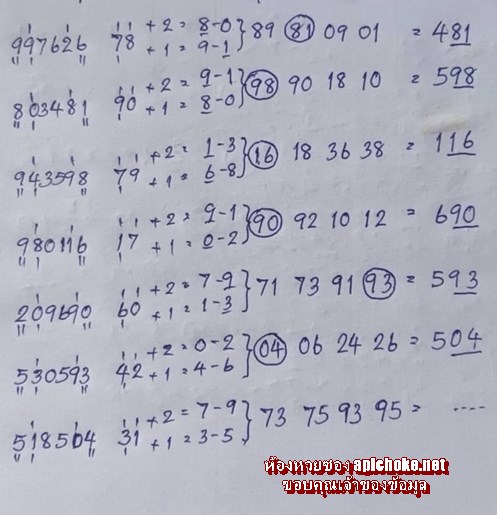 997626 78 +2 = 8-0 } 89 81 09 01 = 481
+1 = 9-1
803481 90 +2 = 9-1 } 98 90 18 10 = 598
+1 = 8-0
943598 79 +2 = 1-3 } 16 18 36 38 = 116
+1 = 6-8
980116 17 +2 = 9-1 } 90 92 10 12 = 690
+1 = 0-2
209690 60 +2 = 7-9 } 71 73 91 93 = 593
+1 = 1-3
530593 42 +2 = 0-2 } 04 06 24 26 = 504
+1 = 4-6
518504 31 +2 = 7-9 } 73 75 93 95 = ....
+1 = 3-5
ห้องหวยซอง apichoke.net
ขอบคุณเจ้าของข้อมูล